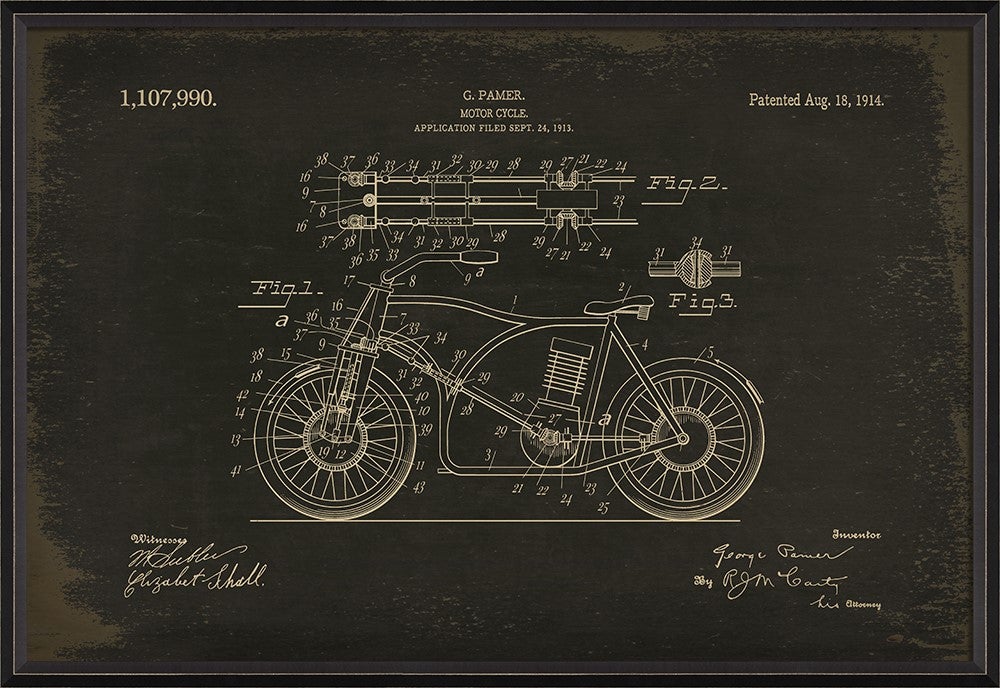 1,107,990.
G. PAMER.
MOTOR CYCLE.
APPLICATION FILED SEPT. 24, 1913.
Patented Aug. 18, 1914.
38 37 36 33 34 31 32 30 29 28 29 27 21 22 24
16
9
7
8
16
Fig. 2.
23
37 38 36 35 33 34 31 32 30 29 28 29 27 21 22 24
31 34 31
Fig. 3.
Fig. 1.
17 8 9 a
16 1 2
36 35 7 33 34
a 37
9 4 5
38 15 31 32 30 29
18 28
42 40
14 10 20 27 a
13 39 29
19 12
41 11 3
43 21 22 24 23 25
Witnesses
Elizabet Schall.
Inventor
George Pamer
By R J McCarty
his Attorney